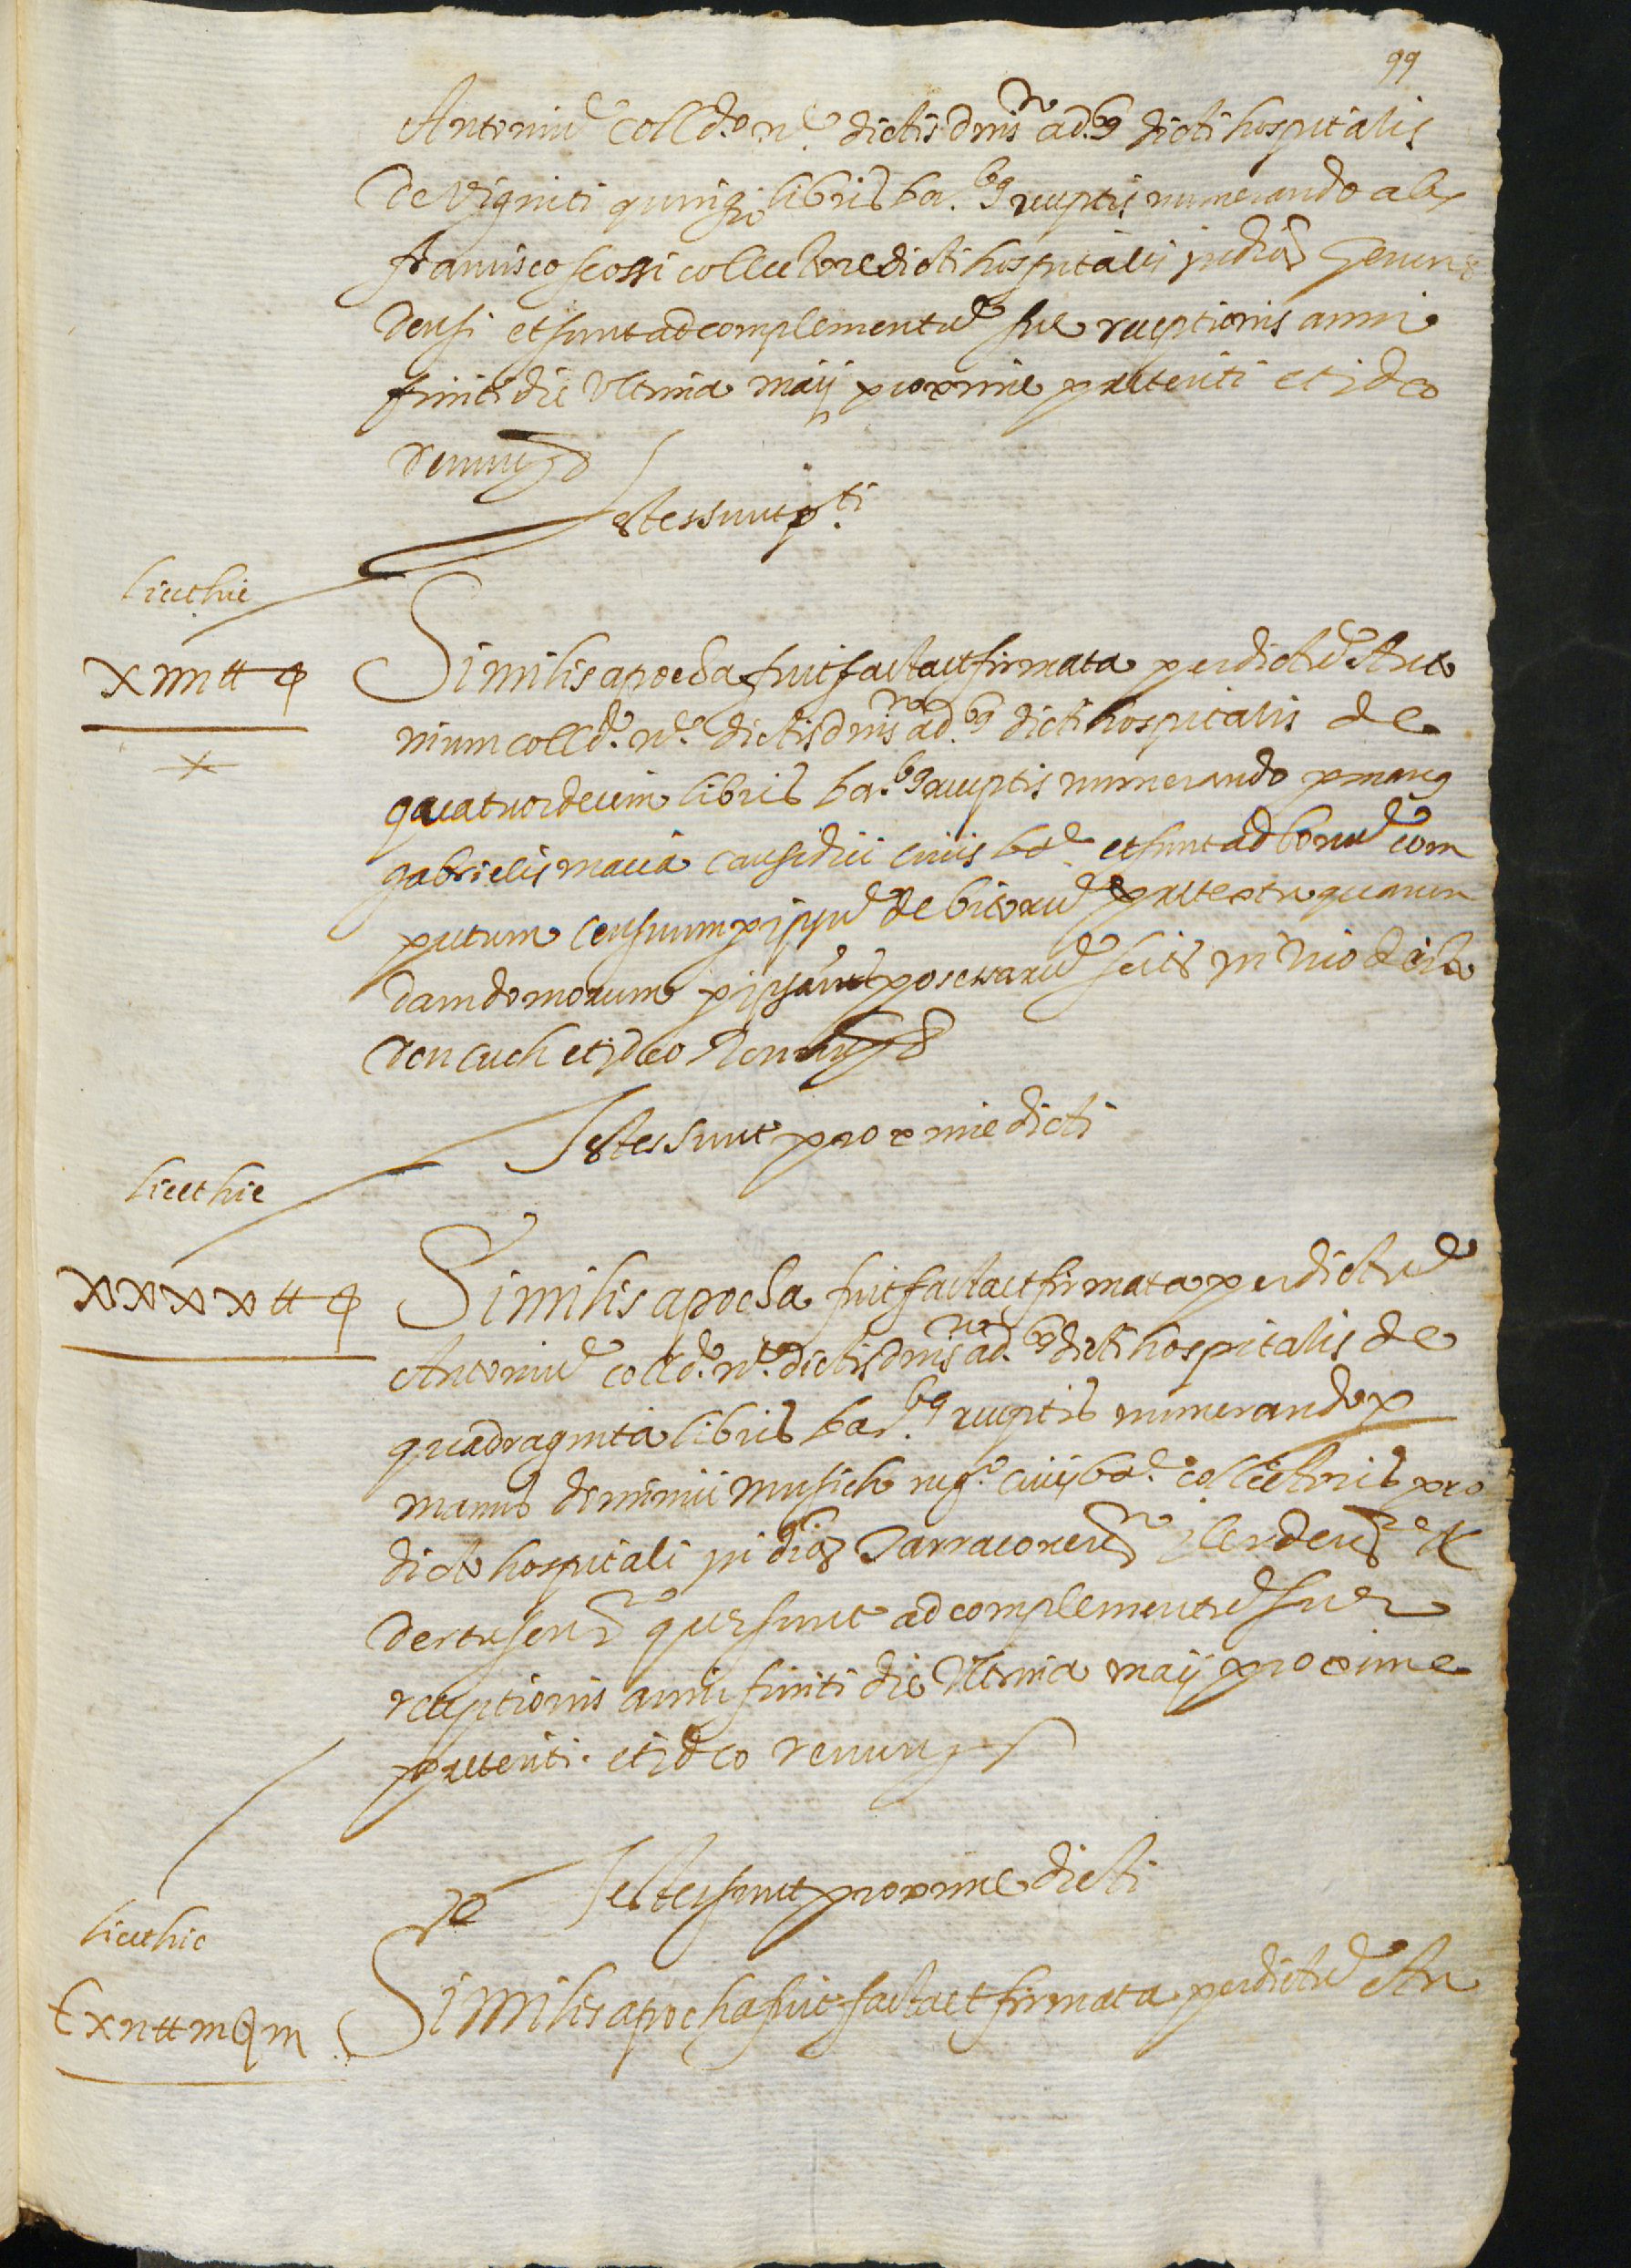 99
Antoniu͂ coll d.º n.º dictis dnis ad.bus dicti hospitalis
de viginti quinq libris bar. receptis numerando a
francisco scossi collectore dicti hospitalis in dioc Gerun
densi et sunt ad complementu͂ sue receptionis anni
finiti die ultima maij proxime preteriti et ideo
renun
Testes sunt p.ti
licet hic
xiiii tt φ
Similis apocha fuit facta et firmata per dictu͂ Anto
nium coll d. n. dictis dnis ad.bus dicti hospitalis de
quatuordecim libris bar. receptis numerando p manus
gabrielis macia causidici civis bar. et sunt ad bonu͂ com
putum censuum p ipsu͂ debitoru͂ pretextu quarun
dam domorum p ipsum possessaru͂ scit in vico dicto
den cuch et ideo Renun
Testes sunt proxime dicti
licet hic
xxxx tt φ
Similis apocha fuit facta et firmata per dictu͂
Antoniu͂ coll d. n. dictis dnis ad.bus dicti hospitalis de
quadraginta libris bar. receptis numerando p
manus dominici musich neg.r civis bar. collectoris pro
dicto hospitali in dioc Tarraconen͂ ilerden͂ et
dertusen͂ que sunt ad complementu͂ sue
receptionis anni finiti die ultima maij proxime
preteriti. et ideo renun
Testes sunt proxime dicti
licet hic
Similis apocha fuit facta et firmata per dictu͂ An